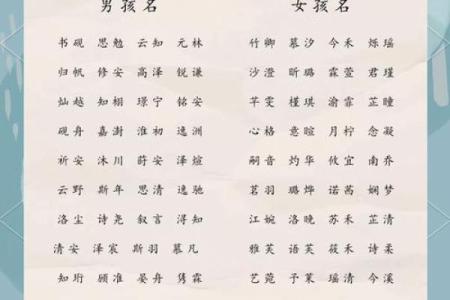 男孩名 女孩名
书砚 思勉 云知 元林 竹卿 慕汐 今禾 烁瑶
归帆 修安 高泽 锐谦 沙澄 昕璐 霖萱 君瑾
灿越 知栩 璟宁 铭安 芊雯 槿琪 渝霏 芷瞳
砚舟 嘉澍 淮初 逸洲 心格 意暄 月柠 念凝
祈安 沐川 莳安 泽煊 嗣音 灼华 攸宜 南乔
云野 斯年 思清 逸驰 茗羽 璐烨 诺茜 娴梦
洛尘 诗尧 叙言 浔知 江婉 洛晚 苏禾 芷清
清安 泽宸 斯羽 慕凡 雅芙 语芙 筱禾 诗柔
知珩 顾准 晏舟 隽霖 艺菀 予茉 瑶清 今溪